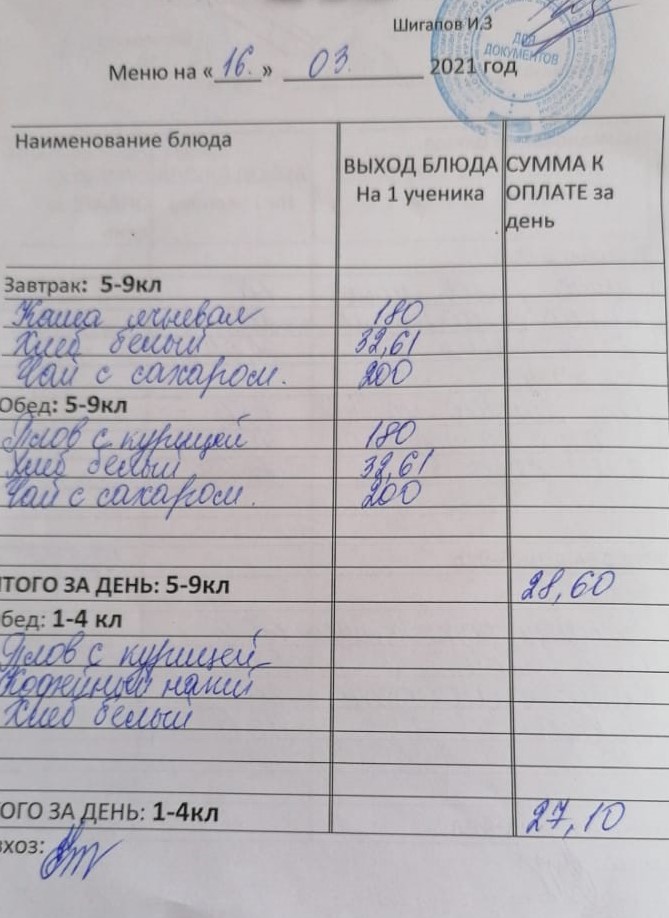 Шигапов И.З
ДЛЯ
ДОКУМЕНТОВ
Меню на «16.» 03. 2021 год
Наименование блюда
ВЫХОД БЛЮДА
На 1 ученика
СУММА К
ОПЛАТЕ за
день
Завтрак: 5-9кл
Каша ячневая 180
Хлеб белый 32,61
Чай с сахаром. 200
Обед: 5-9кл
Плов с курицей 180
Хлеб белый 32,61
Чай с сахаром. 200
ТОГО ЗА ДЕНЬ: 5-9кл 28,60
бед: 1-4 кл
Плов с курицей
Кофейный напит
Хлеб белый
ОГО ЗА ДЕНЬ: 1-4кл 27,10
вхоз: